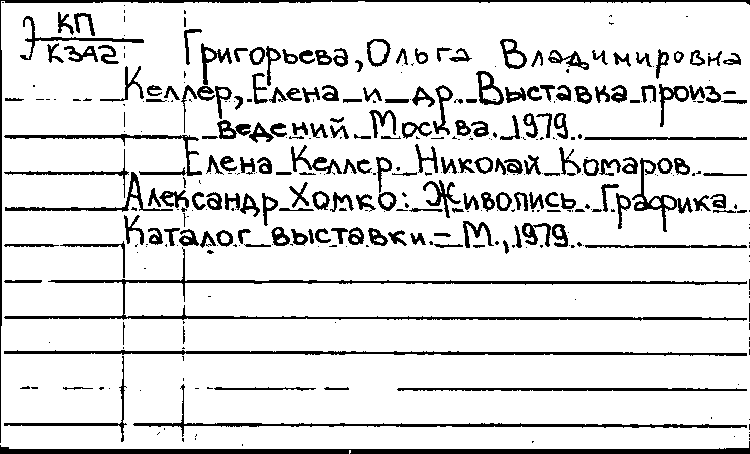 Э КП
К342
Григорьева, Ольга Владимировна
Келлер, Елена и др. Выставка произ-
ведений. Москва. 1979.
Елена Келлер. Николай Комаров.
Александр Хомко: Живопись. Графика.
Каталог выставки. – М., 1979.